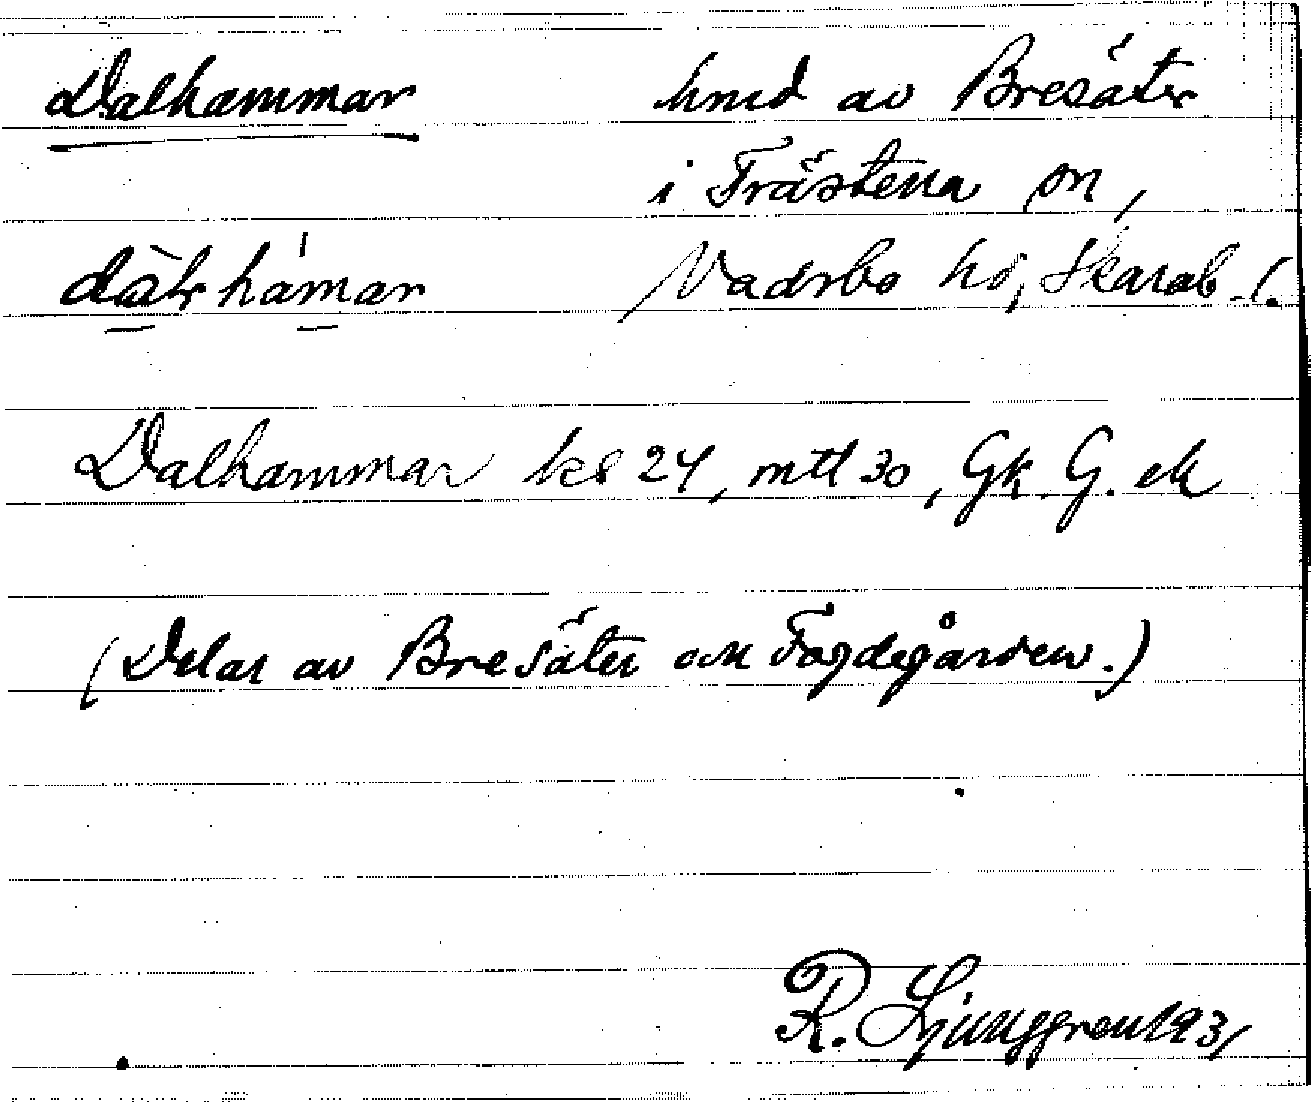 Dalhammar hmd av Bresäter
i Trästena sn,
Vadsbo hd, Skarab. l.
Dalhammar ks 24, mtl 30, Gk. G. M
(Delar av Bresäter och Fogdegården.)
R. Ljunggren 1931